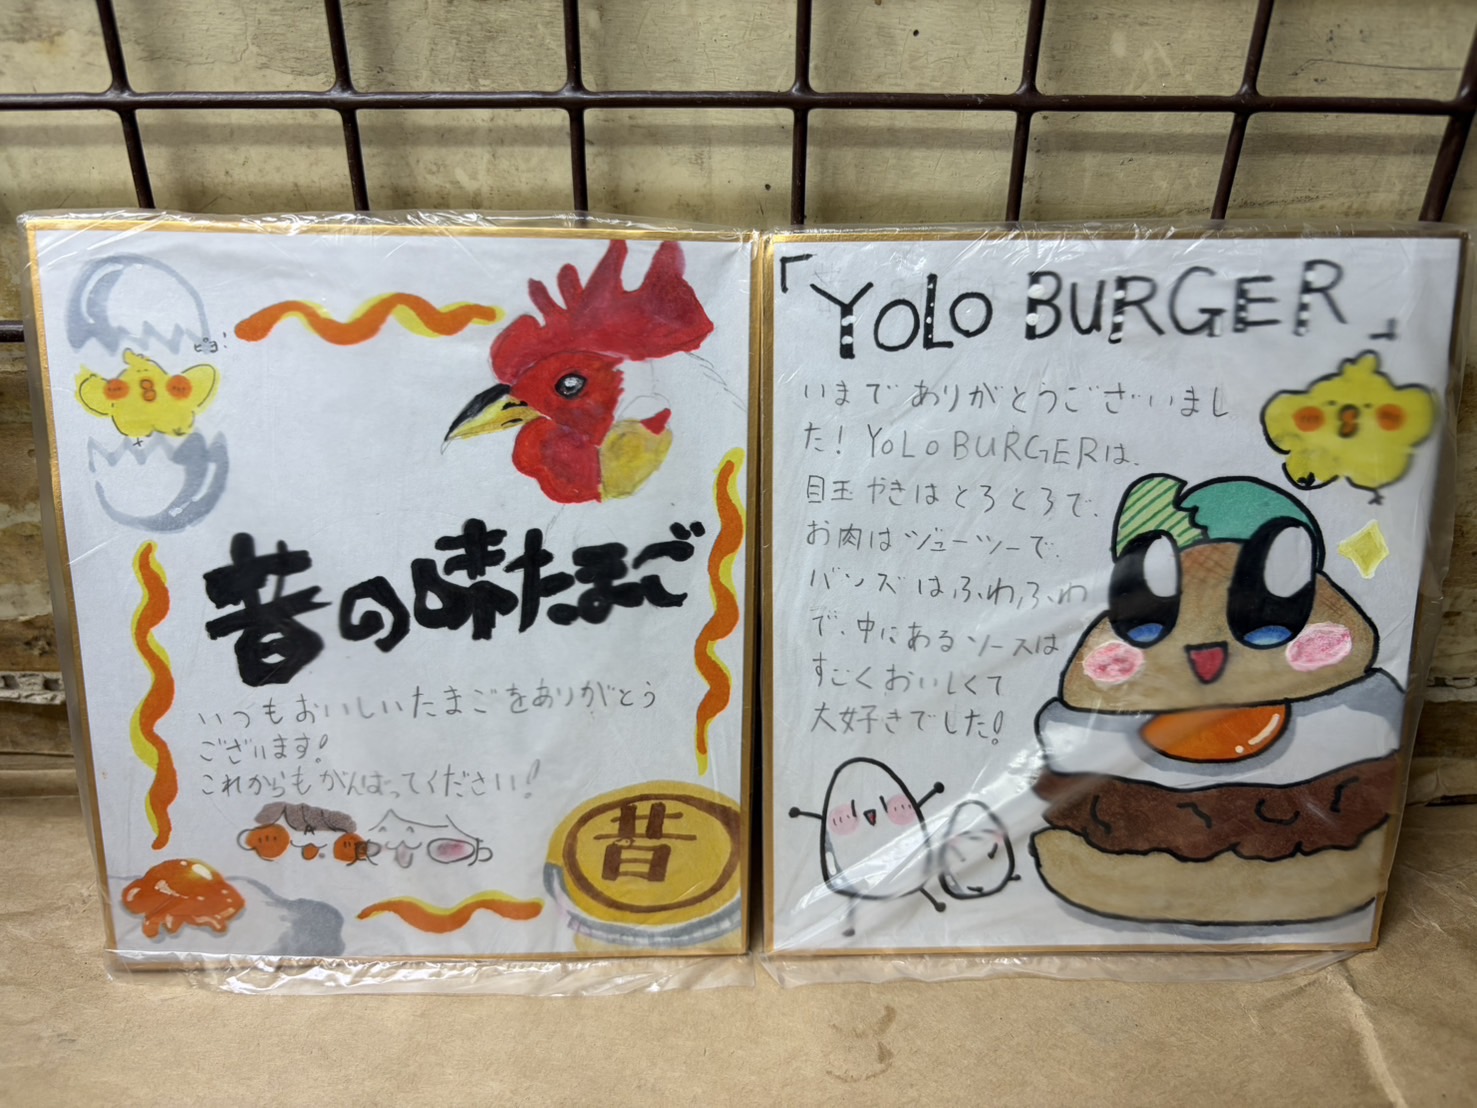 ピヨ!
昔の味たまご
いつもおいしいたまごをありがとう
ございます!
これからもがんばってください!
昔
「YOLO BURGER」
いまでありがとうございまし
た! YOLO BURGERは、
目玉やきはとろとろで、
お肉はジューシーで、
バンズはふわふわ
で、中にあるソースは
すごくおいしくて
大好きでした!